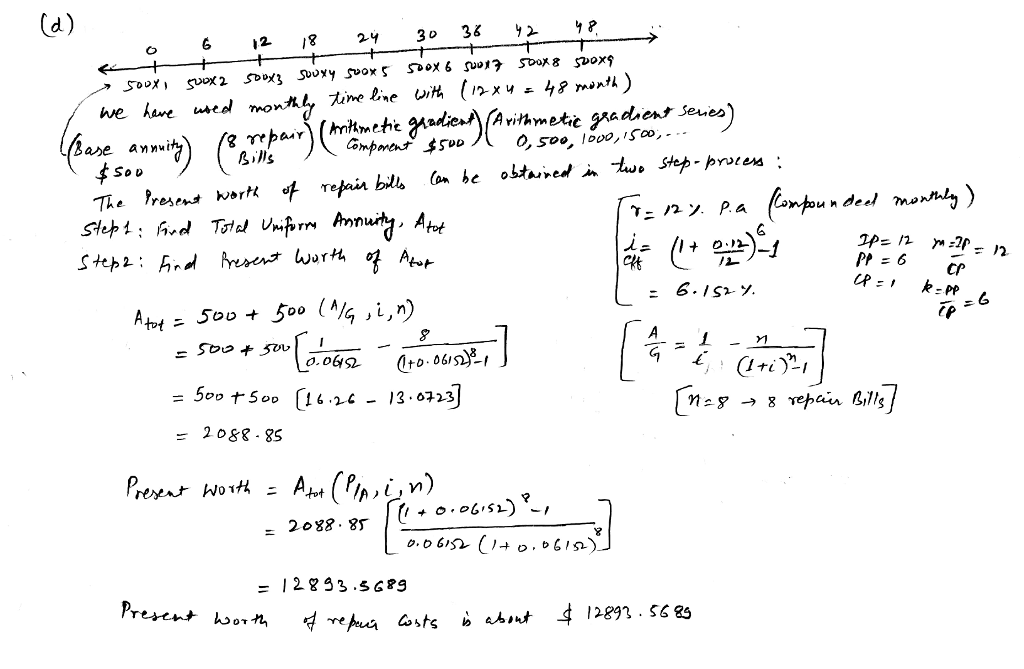 (d)
0 6 12 18 24 30 36 42 48
500x1 500x2 500x3 500x4 500x5 500x6 500x7 500x8 500x9
we have used monthly time line with (12x4 = 48 month)
(Base annuity $500) (8 repair Bills) (Arithmetic gradient Component $500) (Arithmetic gradient series) 0, 500, 1000, 1500, ...
The Present worth of repair bills can be obtained in two step-process :
Step 1: Find Total Uniform Annuity, Atot
Step 2: Find Present Worth of Atot
r = 12 %. P.a (Compounded monthly)
i eff = (1 + 0.12/12)^6 - 1
= 6.152 %.
IP = 12 m = IP/CP = 12
PP = 6
CP = 1 k = PP/CP = 6
Atot = 500 + 500 (A/G, i, n)
= 500 + 500 [1/0.06152 - 8/((1+0.06152)^8 - 1)]
= 500 + 500 [16.26 - 13.0723]
= 2088.85
[A/G = 1/i - n/((1+i)^n - 1)]
[n = 8 → 8 repair Bills]
Present Worth = Atot (P/A, i, n)
= 2088.85 [((1 + 0.06152)^8 - 1)/(0.06152 (1 + 0.06152)^8)]
= 12893.5689
Present worth of repair costs is about $ 12893.5689